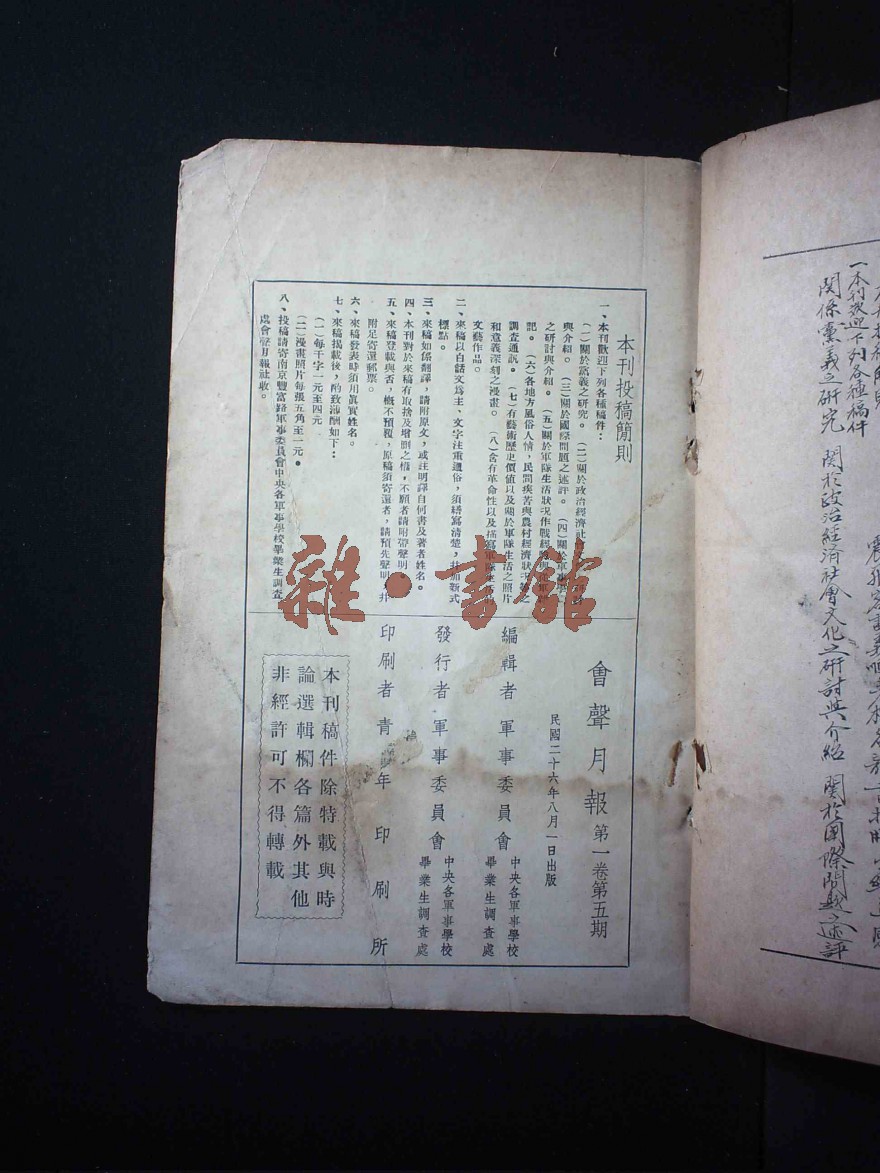 本刊投稿簡則
一、本刊歡迎下列各種稿件：
（一）關於黨義之研究。（二）關於政治經濟社
與介紹。（三）關於國際問題之述評。（四）關於軍事學
之研討與介紹。（五）關於軍隊生活狀况作戰經
記。（六）各地方風俗人情，民間疾苦與農村經濟狀况等之
調查通訊。（七）有藝術歷史價值以及關於軍隊生活之照片
和意義深刻之漫畫。（八）含有革命性以及描寫軍隊生活
文藝作品。
二、來稿以白話文爲主、文字注重通俗，須繕寫清楚，並加新式
標點。
三、來稿如係翻譯，請附原文，或註明譯自何書及著者姓名。
四、本刊對於來稿有取捨及增刪之權，不願者請附帶聲明。
五、來稿登載與否，概不預覆，原稿須寄還者，請預先聲明，并
附足寄還郵票。
六、來稿發表時須用眞實姓名。
七、來稿揭載後，酌致薄酬如下：
（一）每千字一元至四元
（二）漫畫照片每張五角至一元。
八、投稿請寄南京豐富路軍事委員會中央各軍事學校畢業生調查
處會聲月報社收。
會聲月報 第一卷第五期
民國二十六年八月一日出版
編輯者 軍事委員會 中央各軍事學校畢業生調查處
發行者 軍事委員會 中央各軍事學校畢業生調查處
印刷者 青年印刷所
本刊稿件除特載與時
論選輯欄各篇外其他
非經許可不得轉載
雜·書館
一本刊歡迎下列各種稿件
関係黨義之研究 関於政治經済社會文化之研討與介紹 関於國際問題之述評